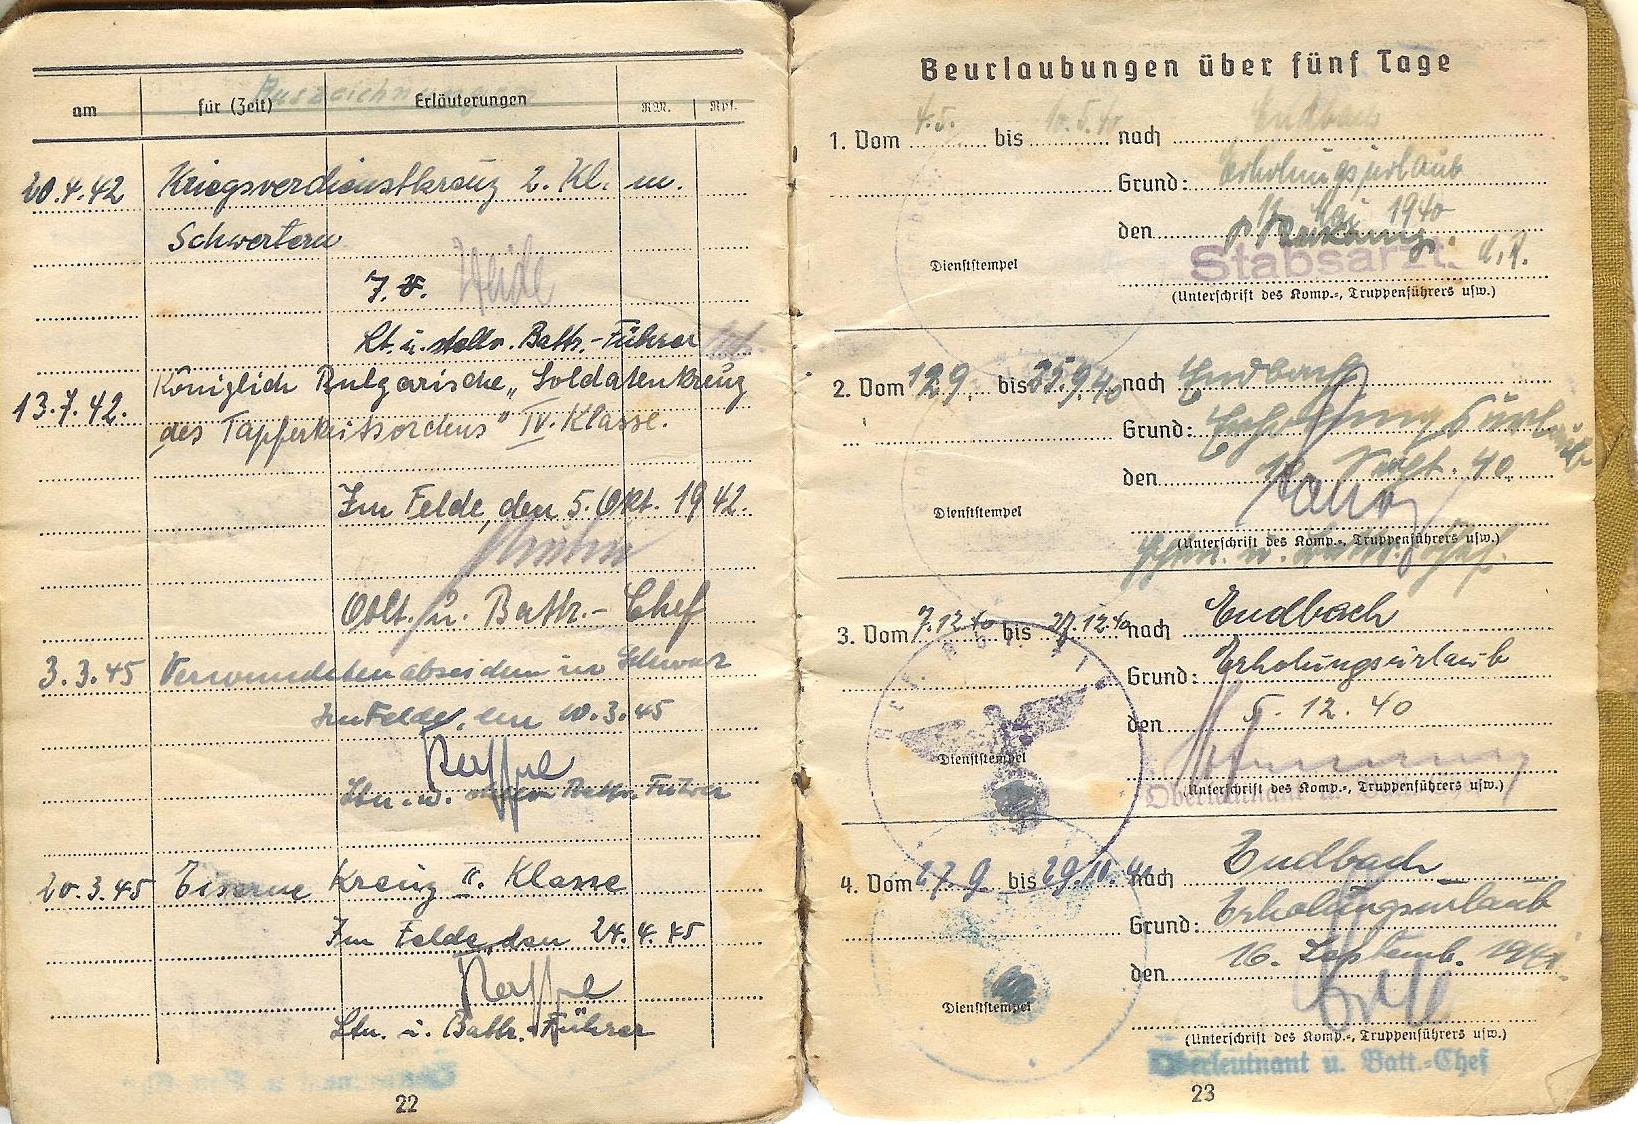 Auszeichnungen
am für (Zeit) Erläuterungen RM. Rpf.
20.4.42 Kriegsverdienstkreuz 2. Kl. m.
Schwertern
J. V. Heide
Lt. u. stellv. Battr.-Führer
13.7.42. Königlich Bulgarische "Soldatenkreuz
des Tapferkeitsordens" IV. Klasse.
Im Felde, den 5. Okt. 1942.
Oblt. u. Battr.- Chef
3.3.45 Verwundetenabzeichen in Schwarz
Im Felde, den 10.3.45
Ltn. u. Battr. Führer
20.3.45 Eiserne Kreuz II. Klasse
Im Felde den 24.4.45
Ltn. u. Battr.-Führer
22
Beurlaubungen über fünf Tage
1. Vom 4.5. bis 10.5.40 nach Endbach
Grund: Erholungsurlaub
den Mai 1940
Stabsarzt.
Dienststempel
(Unterschrift des Komp.-, Truppenführers usw.)
2. Vom 12.9. bis 25.9.40 nach Endbach
Grund: Erholungsurlaub
den Sept. 40.
Dienststempel
(Unterschrift des Komp.-, Truppenführers usw.)
3. Vom 7.12.40 bis 27.12.40 nach Endbach
Grund: Erholungsurlaub
den 5.12.40
Dienststempel
Oberleutnant u.
(Unterschrift des Komp.-, Truppenführers usw.)
4. Vom 27.9. bis 29.10. nach Endbach
Grund: Erholungsurlaub
den 16. Septemb. 1941.
Dienststempel
(Unterschrift des Komp.-, Truppenführers usw.)
Oberleutnant u. Batt.-Chef
23